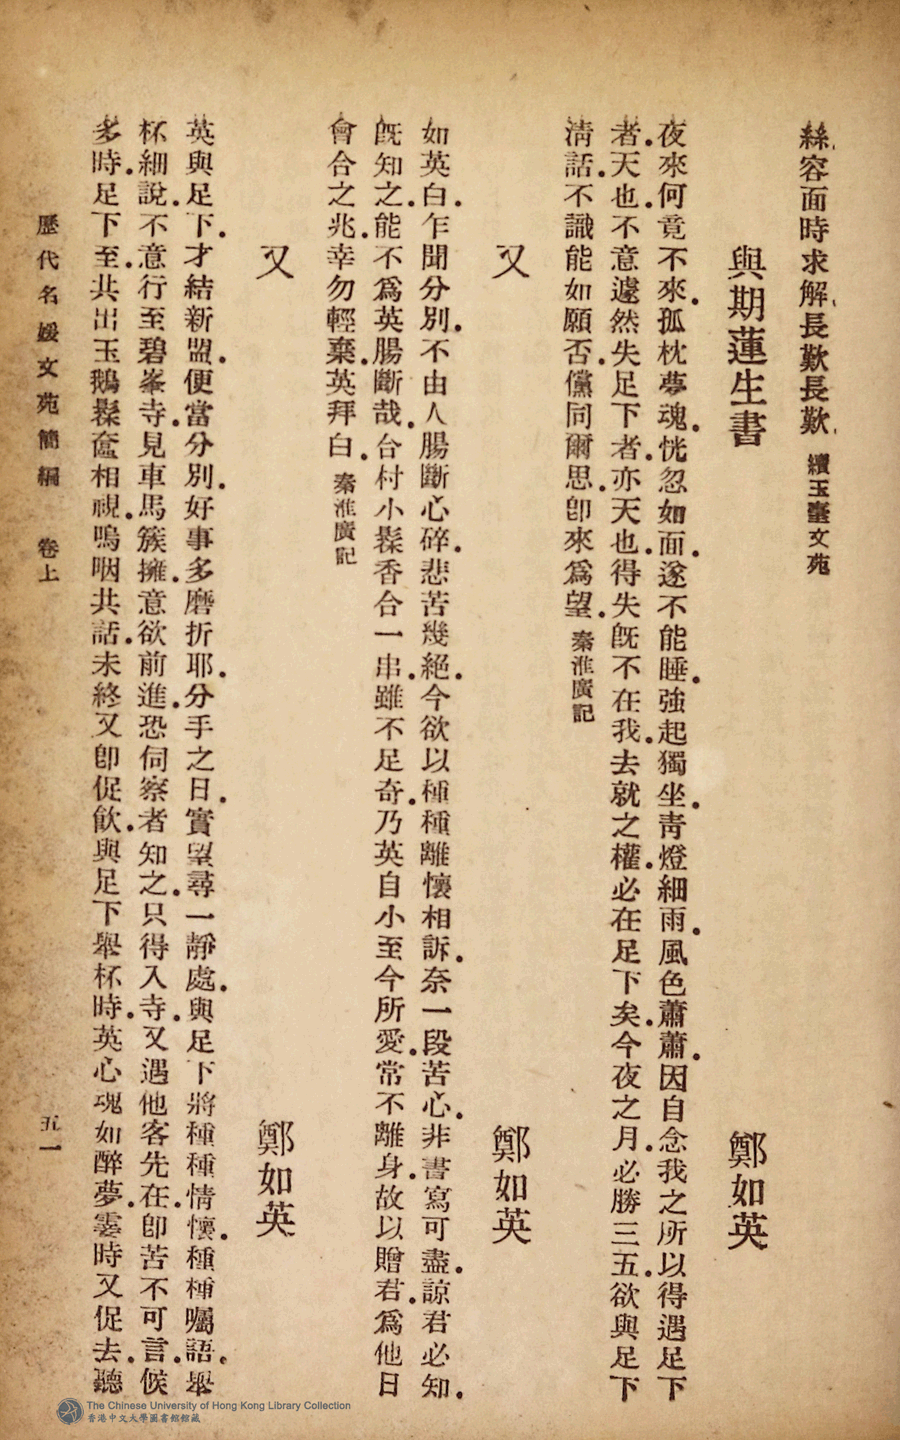 絲容面時求解。長歎長歎。續玉臺文苑
與期蓮生書 鄭如英
夜來何竟不來。孤枕夢魂。恍忽如面。遂不能睡。強起獨坐。靑燈細雨。風色蕭蕭。因自念我之所以得遇足下
者。天也。不意遽然失足下者。亦天也。得失旣不在我。去就之權。必在足下矣。今夜之月。必勝三五。欲與足下
淸話。不識能如願否。儻同爾思。卽來爲望。秦淮廣記
又 鄭如英
如英白。乍聞分別。不由人腸斷心碎。悲苦幾絕。今欲以種種離懷相訴。奈一段苦心。非書寫可盡。諒君必知。
旣知之。能不爲英腸斷哉。台村小鬆香合一串。雖不足奇。乃英自小至今所愛。常不離身。故以贈君。爲他日
會合之兆。幸勿輕棄。英拜白。秦淮廣記
又 鄭如英
英與足下。才結新盟。便當分別。好事多磨折耶。分手之日。實望尋一靜處。與足下將種種情懷。種種囑語。舉
杯細說。不意行至碧峯寺。見車馬簇擁。意欲前進。恐伺察者知之。只得入寺。又遇他客先在。卽苦不可言。候
多時。足下至。共出玉鵝鬆奩相視。嗚咽共話。未終又卽促飮。與足下舉杯時。英心魂如醉夢。霎時又促去。聽
歷代名媛文苑簡編 卷上 五一
The Chinese University of Hong Kong Library Collection
香港中文大學圖書館館藏